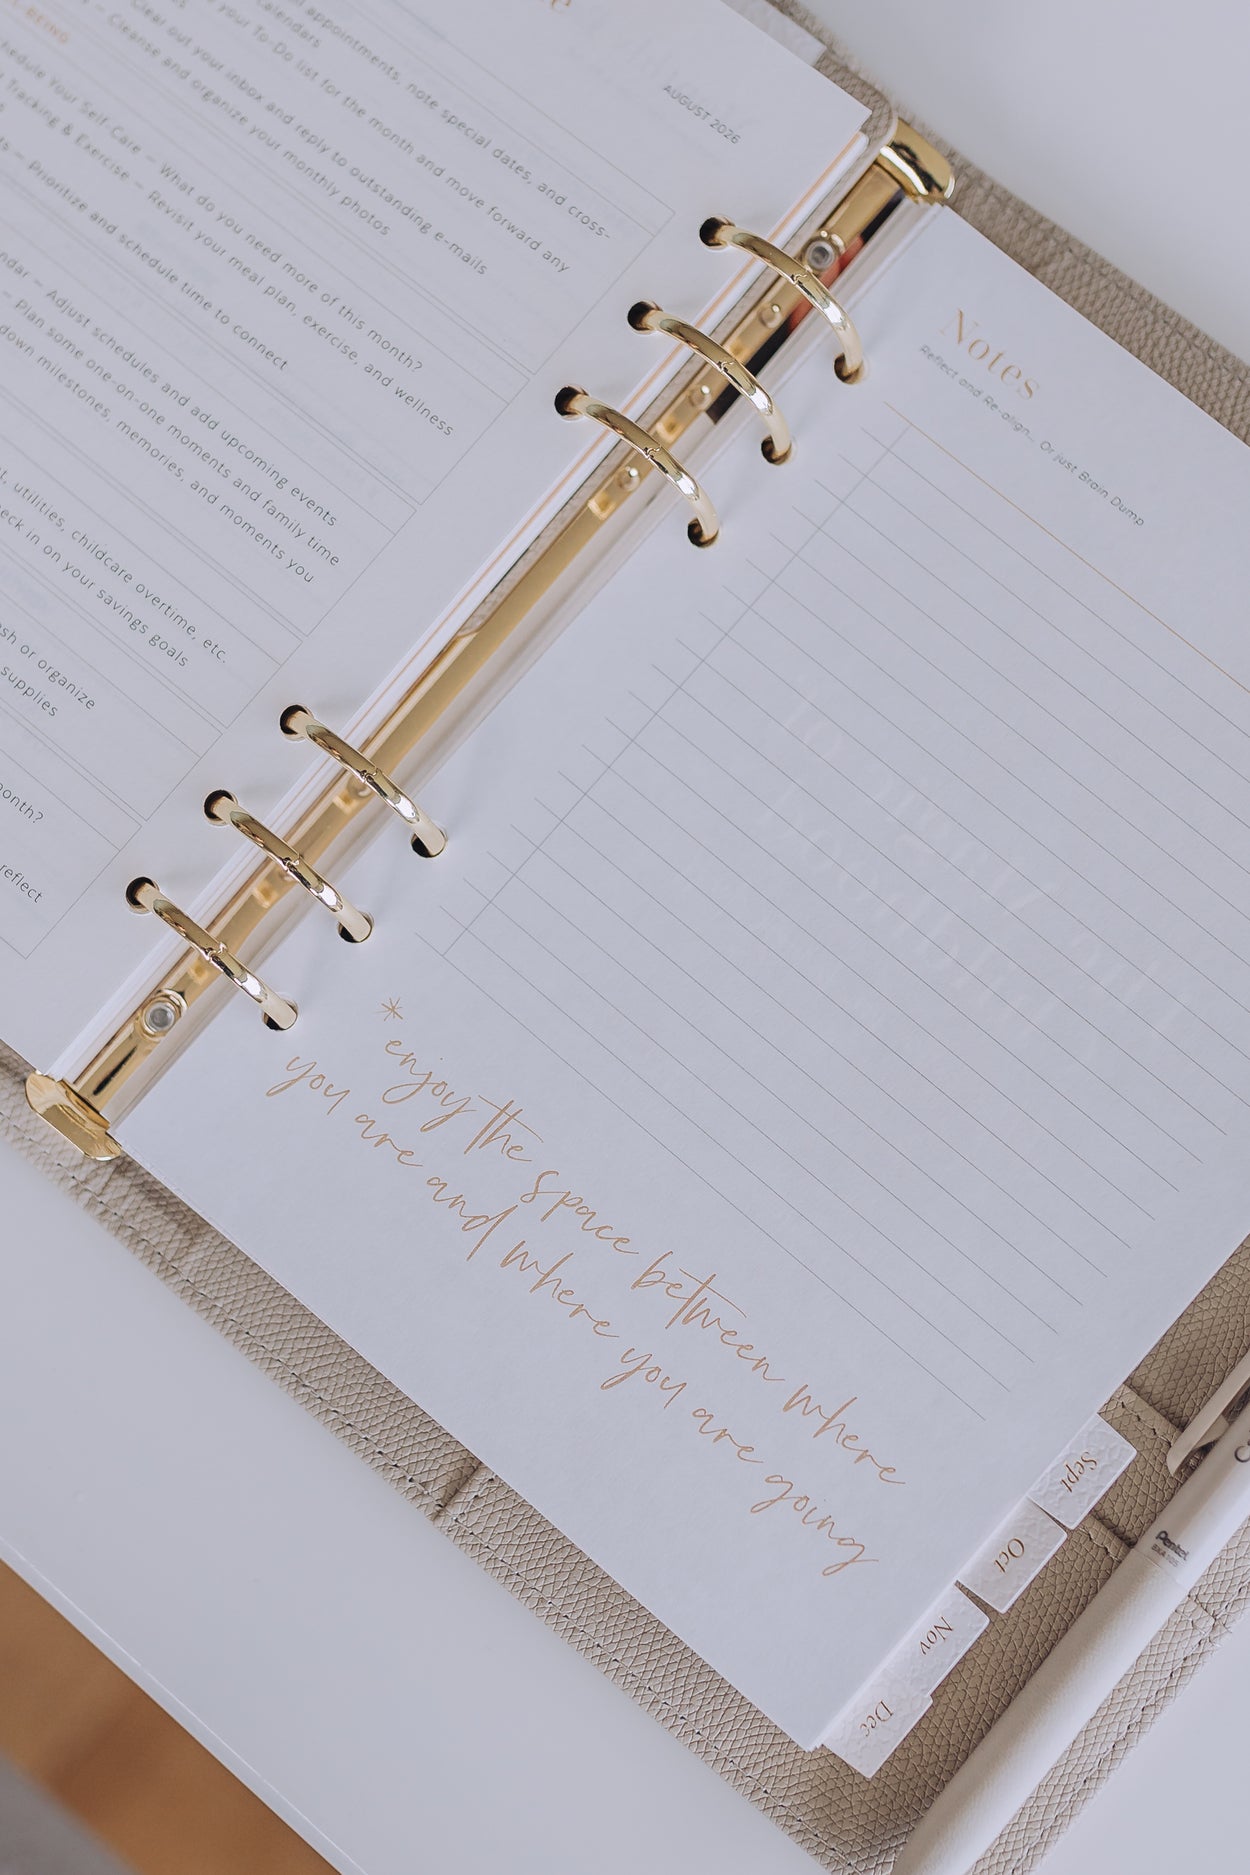 AUGUST 2026
appointments, note special dates, and cross-
calendars
your To-Do list for the month and move forward any
Clear out your inbox and reply to outstanding e-mails
– Cleanse and organize your monthly photos
BEING
Schedule Your Self Care – What do you need more of this month?
Tracking & Exercise – Revisit your meal plan, exercise, and wellness
– Prioritize and schedule time to connect
– Adjust schedules and add upcoming events
– Plan some one-on-one moments and family time
down milestones, memories, and moments you
utilities, childcare overtime, etc.
in on your savings goals
or organize
supplies
month?
reflect
Notes
Reflect and Re-align... Or just Brain Dump
* enjoy the space between where
you are and where you are going
Sept
Oct
Nov
Dec
Pentel